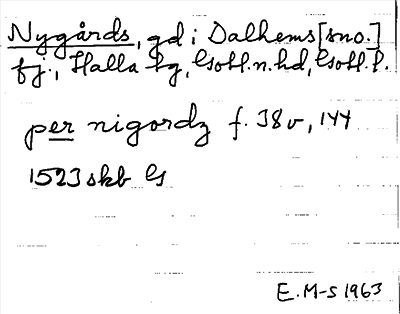 Nygårds, gd i Dalhems [sno.]
fj., Halla kg, Gotl.n.hd, Gotl.l.
per nigordz f. 38v, 144
1523 skb G
E. M-s 1963